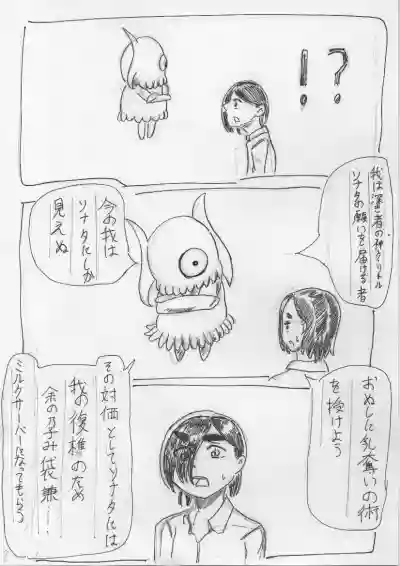 !?
我は運者の神クリトル
ソナタの願いを届ける者
今の我は
ソナタにしか
見えぬ
おぬしに乳奪いの術
を授けよう
その対価としてソナタには
我の復権のため
余の孕み袋兼…
ミルクサーバーになってもらう